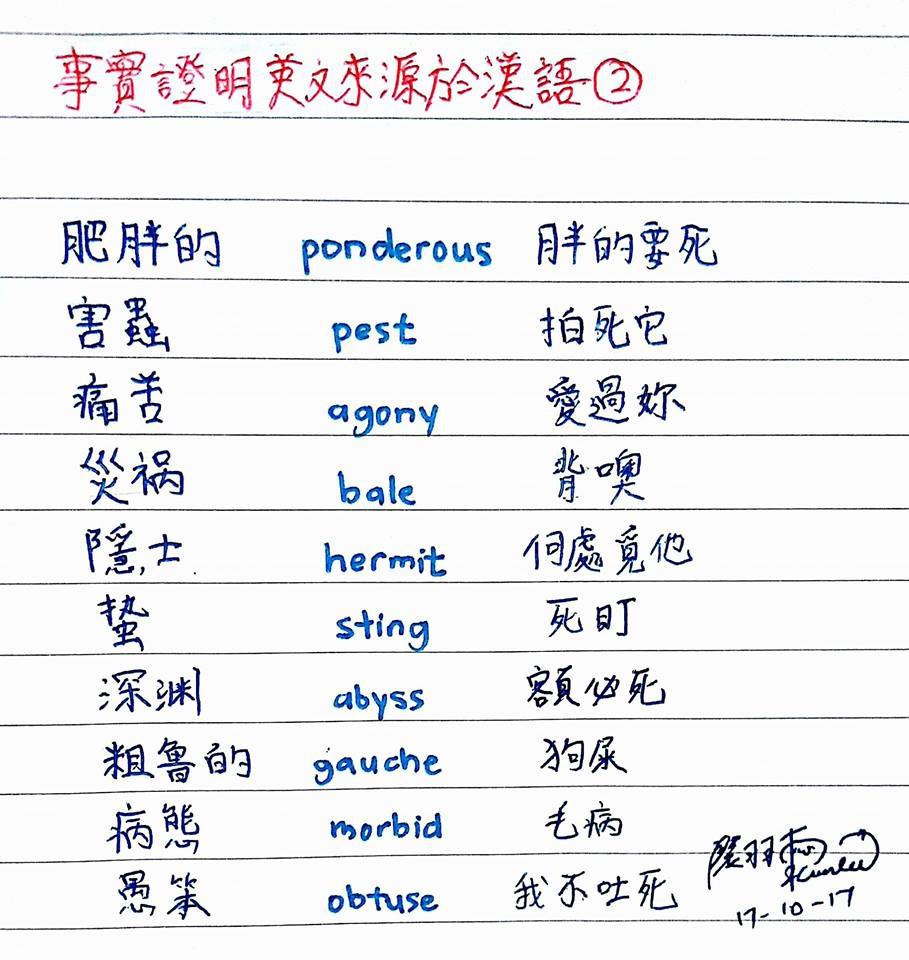 事實證明英文來源於漢語②
肥胖的 ponderous 胖的要死
害蟲 pest 拍死它
痛苦 agony 愛過妳
災祸 bale 背噢
隱士 hermit 何處覓他
蛰 sting 死盯
深渊 abyss 額必死
粗魯的 gauche 狗屎
病態 morbid 毛病
愚笨 obtuse 我不吐死
17-10-17